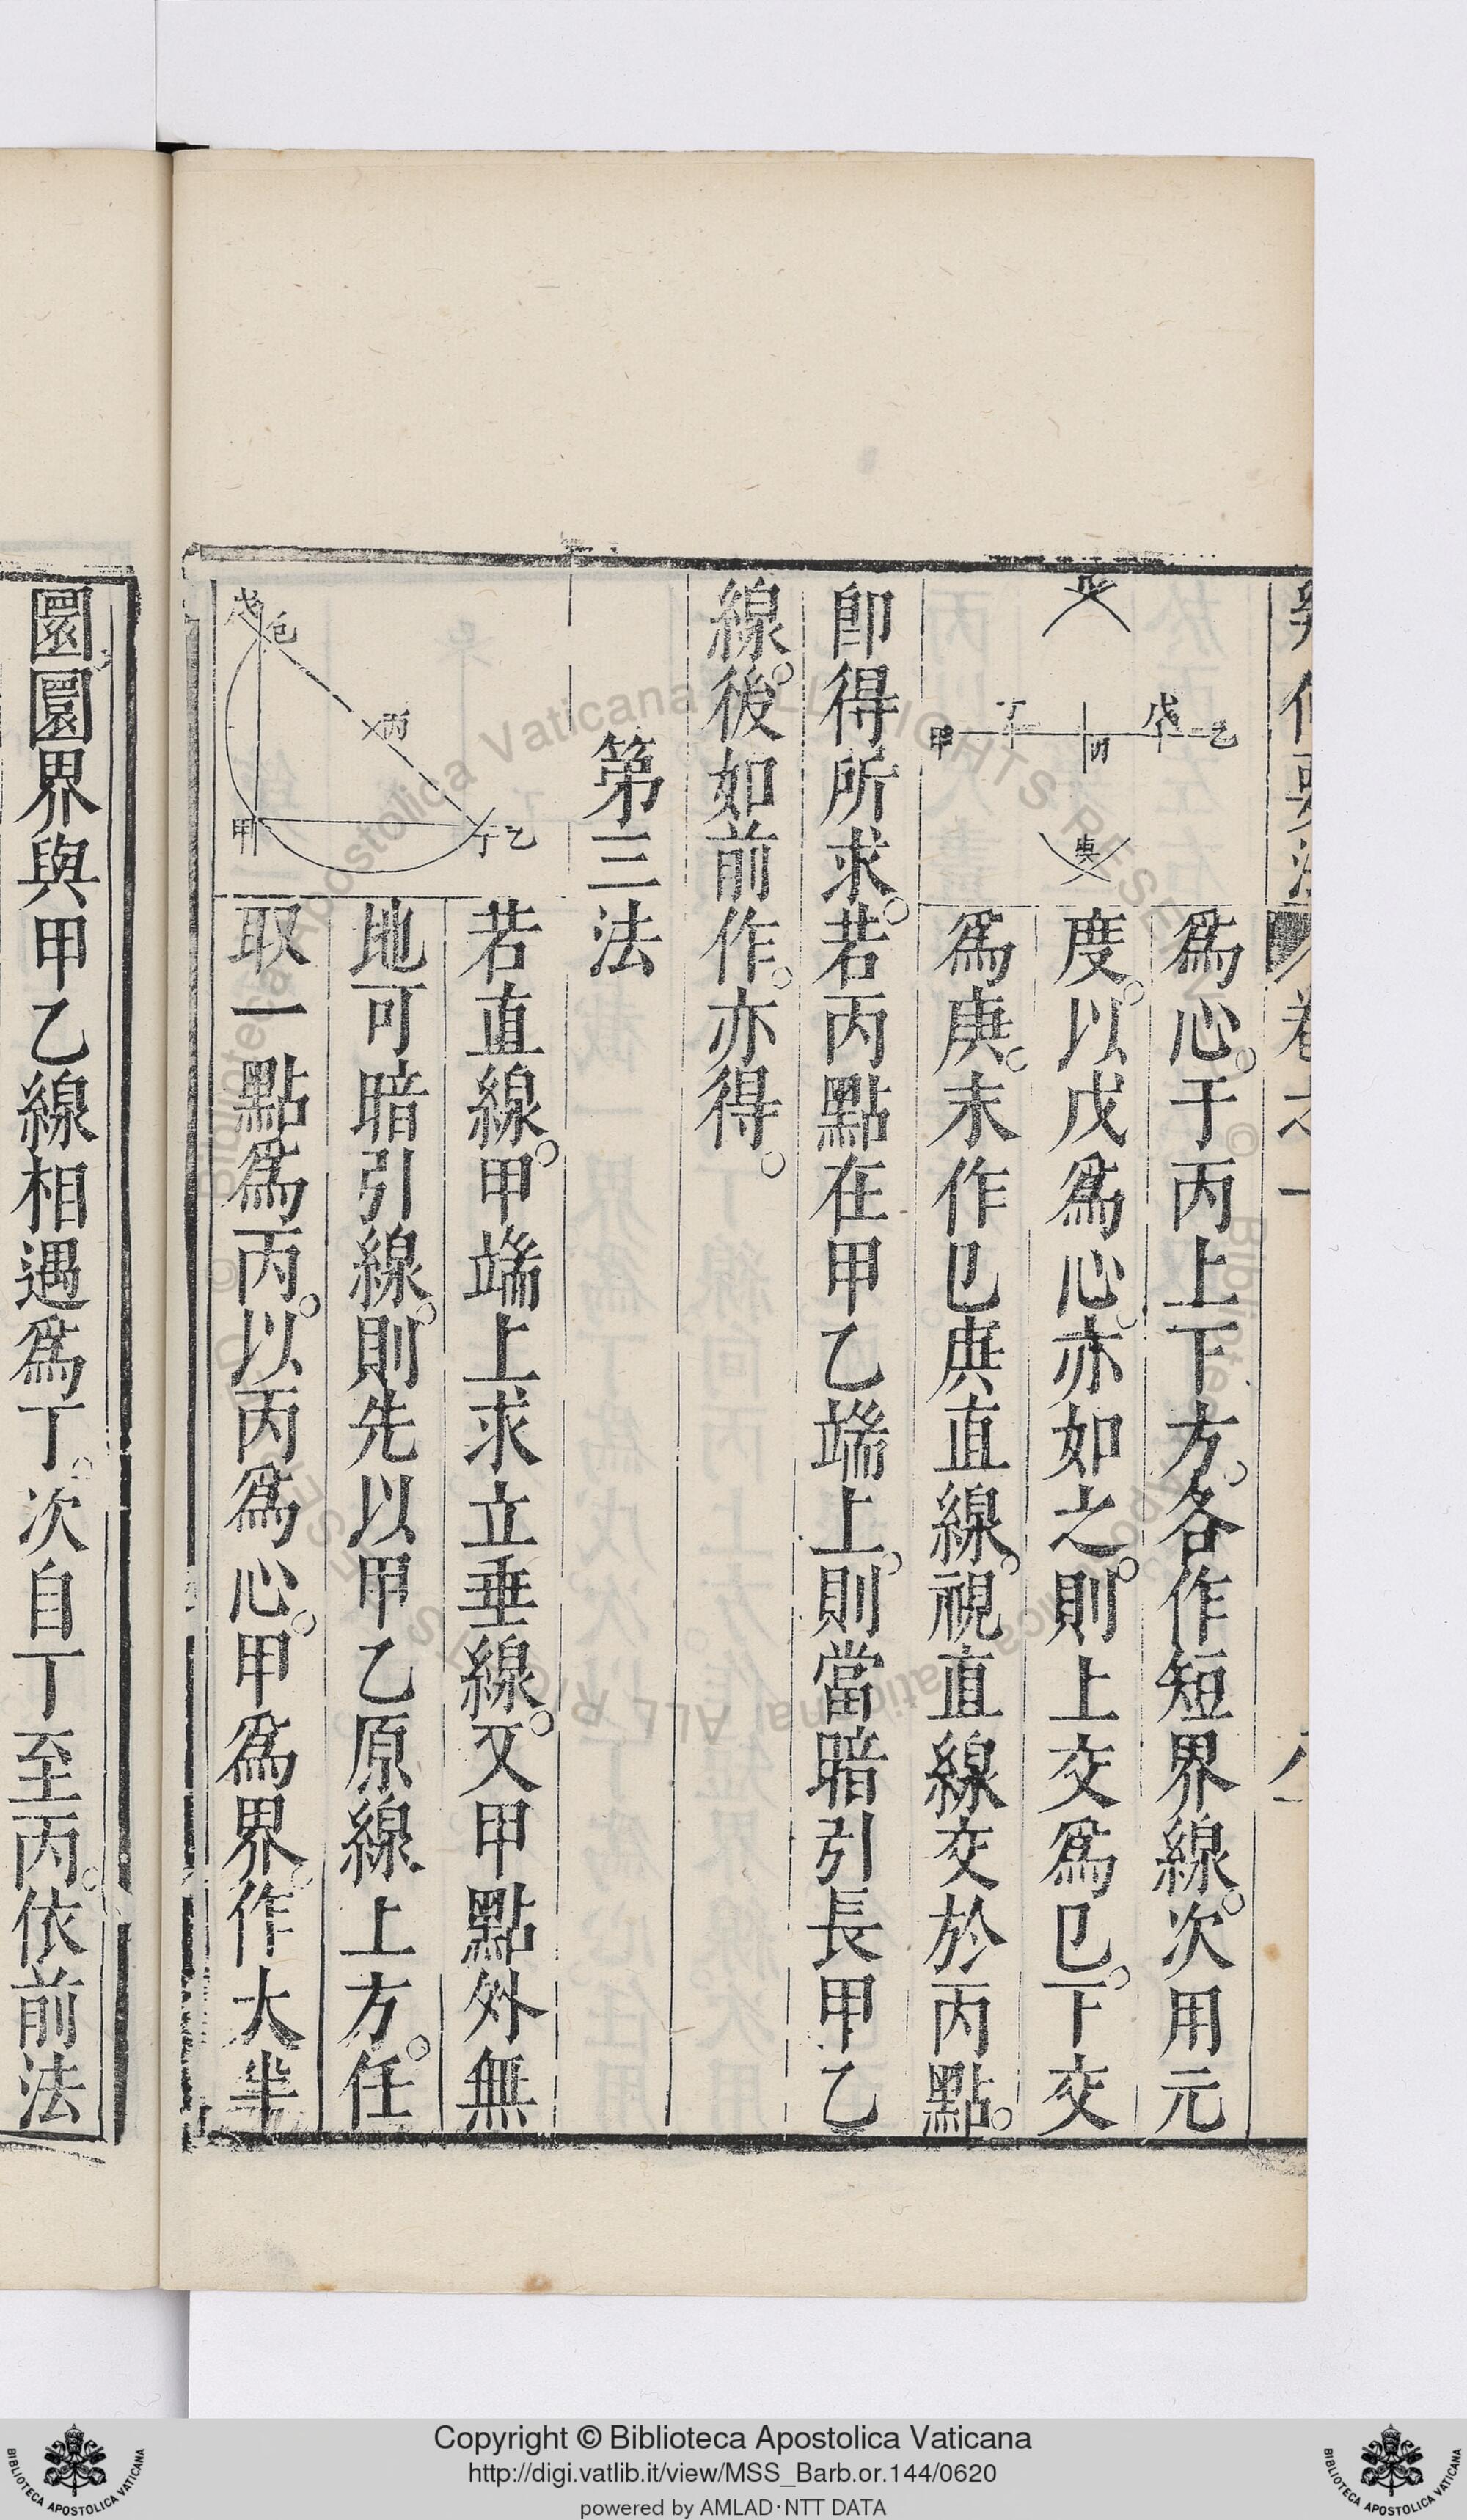 卷之一
爲心。于丙上下方。各作短界線。次用元
度。以戊爲心。亦如之。則上交爲巳。下交
爲庚。末作巳庚直線。視直線交於丙點。
即得所求。若丙點在甲乙端上。則當暗引長甲乙
線。後如前作。亦得。
第三法
若直線。甲端上求立垂線。又甲點外無
地可暗引線。則先以甲乙原線上方。任
取一點爲丙。以丙爲心。甲爲界。作大半
圜圜界與甲乙線相遇爲丁。次自丁至丙。依前法
乙 戊 丙 丁 甲
庚
戊 己
丙
甲 丁 乙
Copyright © Biblioteca Apostolica Vaticana
http://digi.vatlib.it/view/MSS_Barb.or.144/0620
powered by AMLAD·NTT DATA
BIBLIOTECA APOSTOLICA VATICANA
BIBLIOTECA APOSTOLICA VATICANA